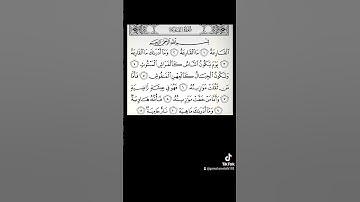 بِسْمِ اللَّهِ الرَّحْمَٰنِ الرَّحِيمِ
الْقَارِعَةُ ١ مَا الْقَارِعَةُ ٢ وَمَا أَدْرَاكَ مَا الْقَارِعَةُ
٣ يَوْمَ يَكُونُ النَّاسُ كَالْفَرَاشِ الْمَبْثُوثِ ٤
وَتَكُونُ الْجِبَالُ كَالْعِهْنِ الْمَنفُوشِ ٥ فَأَمَّا
مَن ثَقُلَتْ مَوَازِينُهُ ٦ فَهُوَ فِي عِيشَةٍ رَّاضِيَةٍ
٧ وَأَمَّا مَنْ خَفَّتْ مَوَازِينُهُ ٨ فَأُمُّهُ هَاوِيَةٌ
٩ وَمَا أَدْرَاكَ مَا هِيَهْ ١٠ نَارٌ حَامِيَةٌ ١١
TikTok